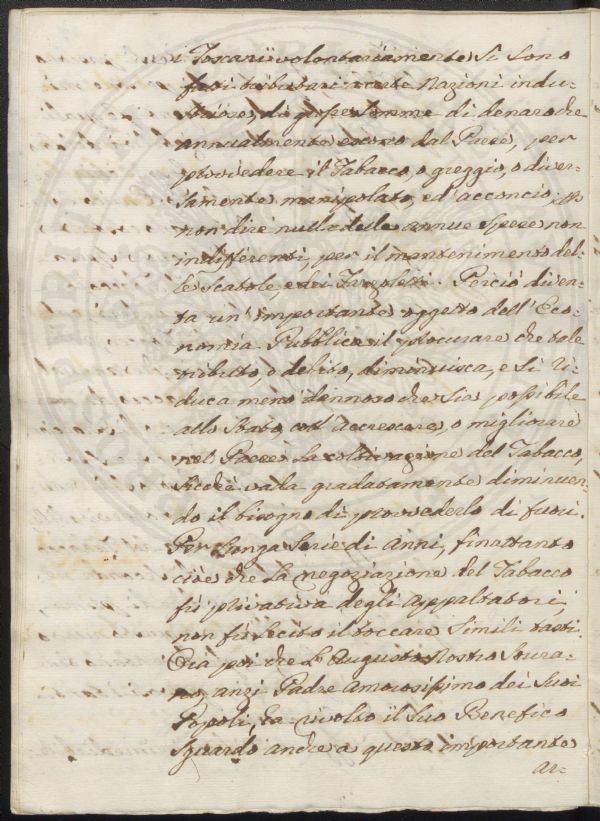 i Toscani volontariamente si sono
fatti tributari verso Nazioni indu-
striose, di grosse somme di denaro che
annualmente escono dal Paese, per
provvedere il Tabacco, o greggio, o diver-
samente manipolato, ed acconcio; per
non dire nulla delle annue Spese non
indifferenti, per il mantenimento del-
le Scatole, e dei Fazzoletti. Perciò diven-
ta un' importante oggetto dell' Eco-
nomia Pubblica il procurare che tale
tributo, o debito, diminuisca, e si ri-
duca meno dannoso che sia possibile
allo Stato, coll' accrescere, o migliorare
nel Paese la coltivazione del Tabacco,
sicchè vada gradatamente diminuen-
do il bisogno di provvederlo di fuori.
Per lunga serie di Anni, finattanto
cioè che la negoziazione del Tabacco
fù privativa degli Appaltatori,
non fù lecito il toccare simili tasti.
Ora poi che L' Augusto Nostro Sovra-
no, anzi Padre Amorosissimo dei Suoi
Popoli, ha rivolto il Suo Benefico
Sguardo anche a questo importante
ar-